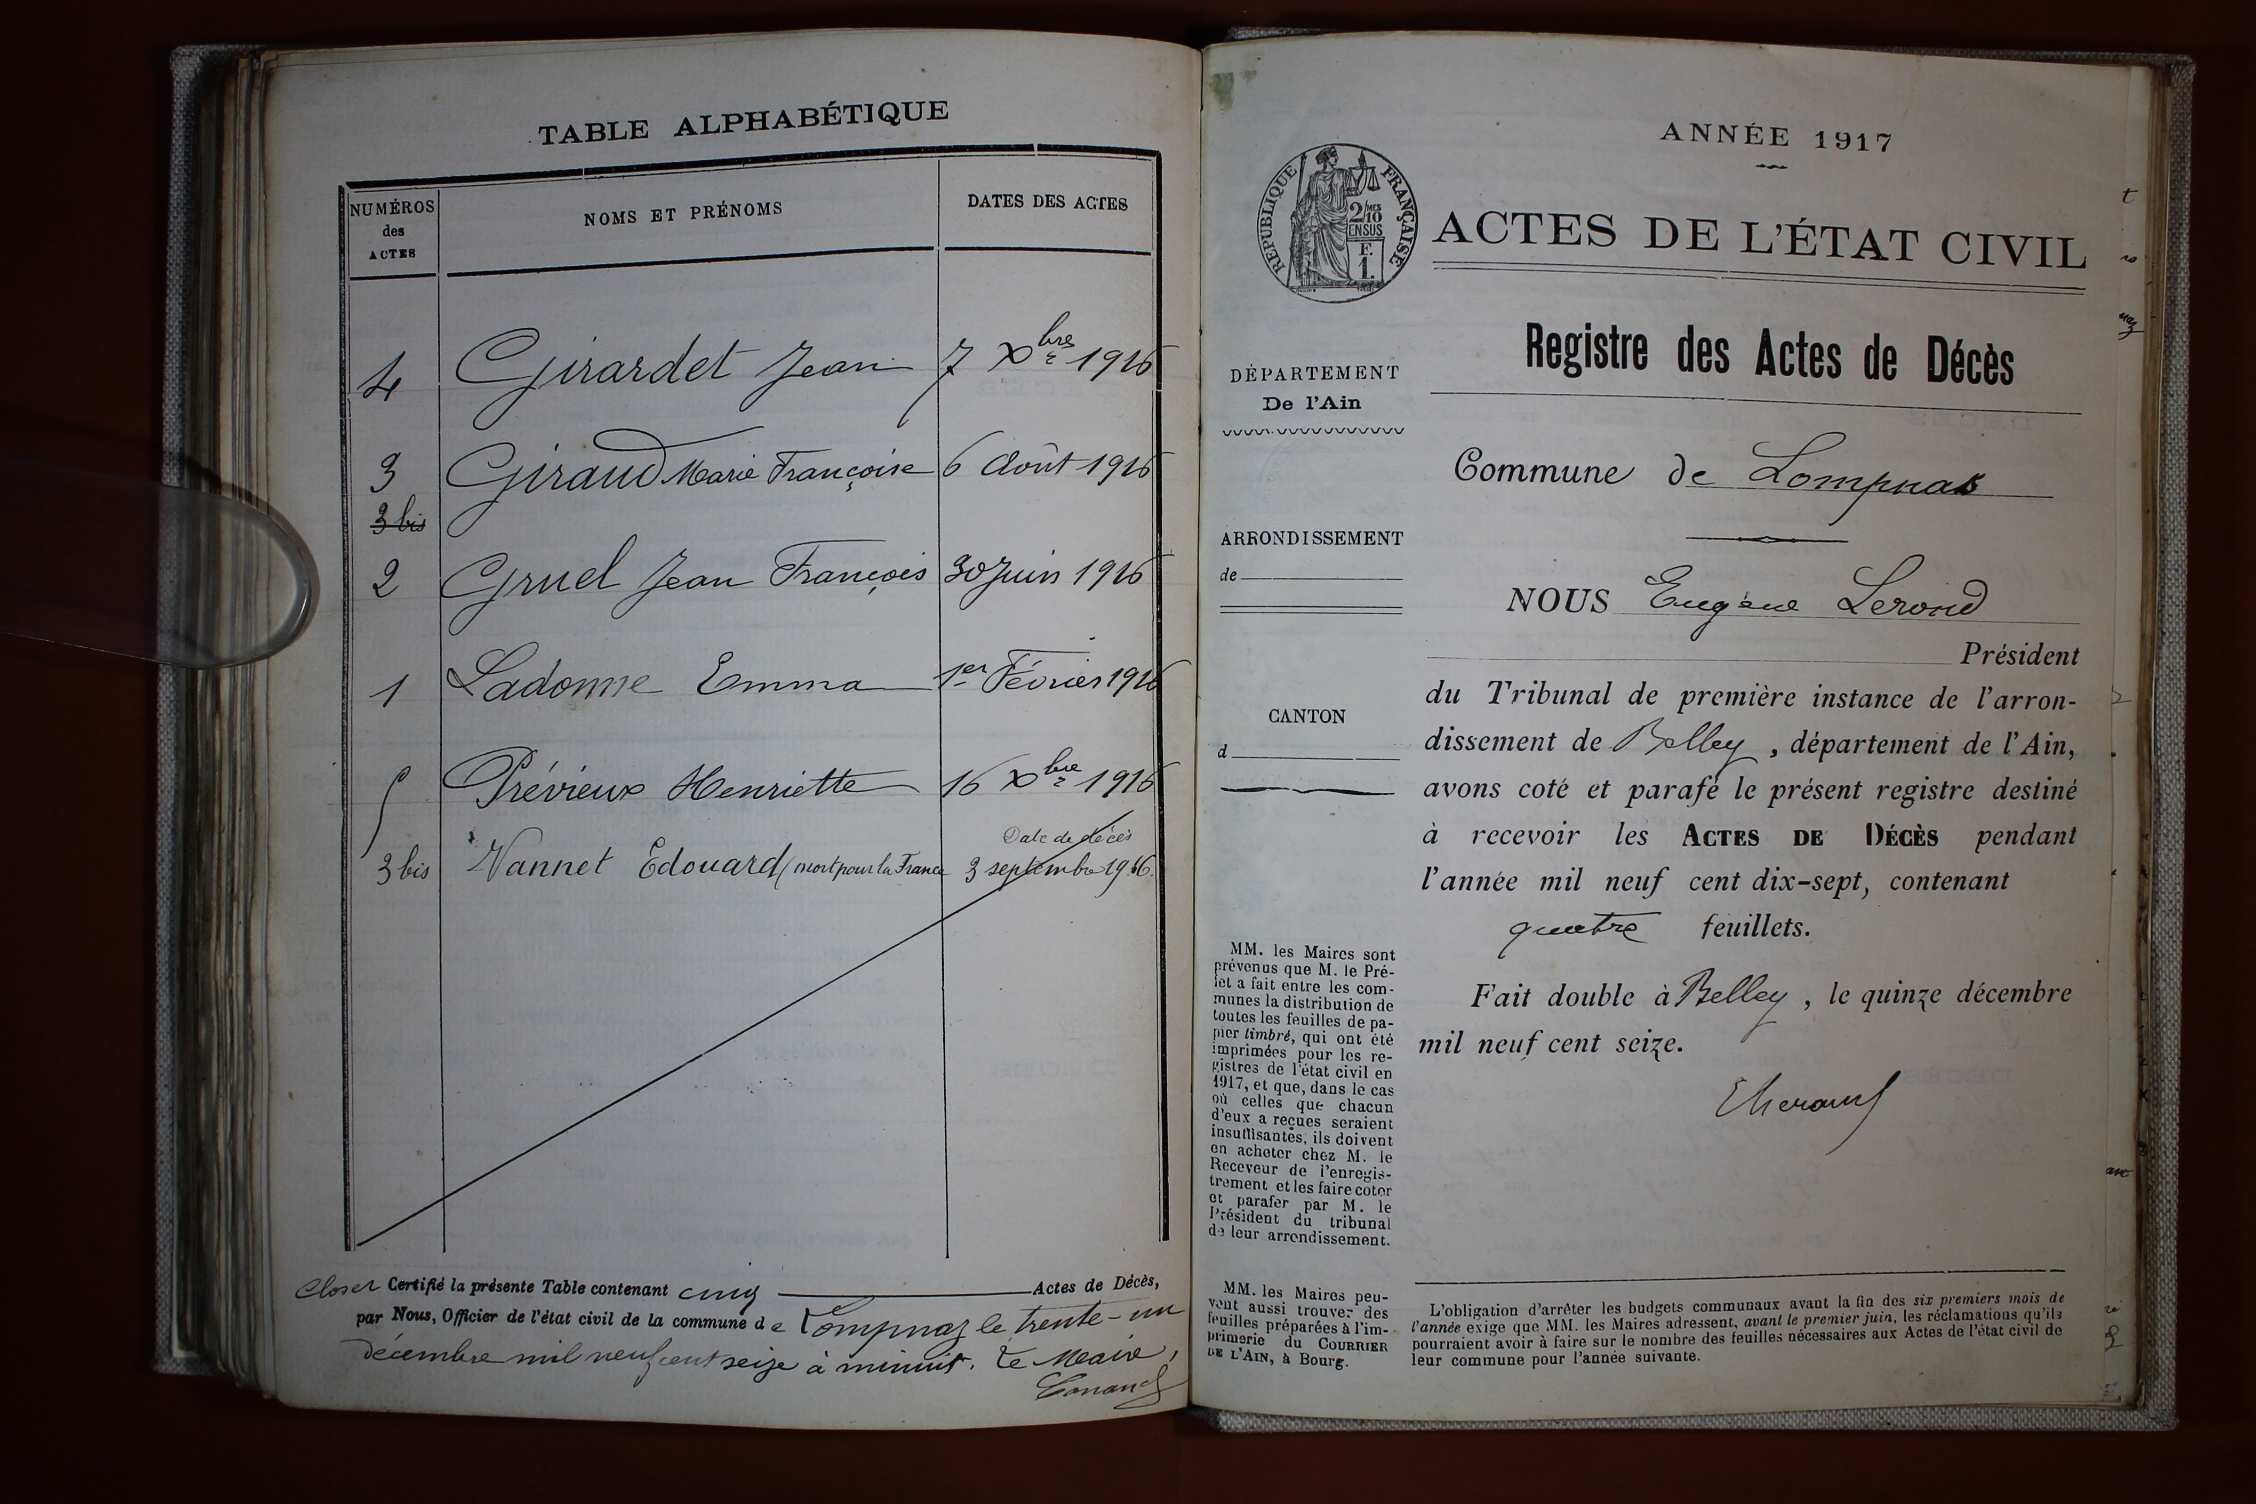 TABLE ALPHABÉTIQUE
NUMÉROS des ACTES
NOMS ET PRÉNOMS
DATES DES ACTES
4 Girardet Jean 7 Xbre 1916
3 Giraud Marie Françoise 6 Août 1916
3 bis
2 Gruel Jean François 30 Juin 1916
1 Ladonne Emma 1er Février 1916
5 Prévieux Henriette 16 Xbre 1916
Date de décès
3 bis Vannet Edouard (mort pour la France 3 septembre 1916.
Closet Certifié la présente Table contenant cinq Actes de Décès,
par Nous, Officier de l'état civil de la commune de Lompnaz le trente-un
décembre mil neuf cent seize à minuit. Le Maire,
ANNÉE 1917
RÉPUBLIQUE FRANÇAISE
2/10 MES
EN SUS
F.
1.
ACTES DE L'ÉTAT CIVIL
Registre des Actes de Décès
DÉPARTEMENT
De l'Ain
ARRONDISSEMENT
de
CANTON
d
Commune de Lompnas
NOUS Eugène Lerond
Président
du Tribunal de première instance de l'arron-
dissement de Belley, département de l'Ain,
avons coté et parafé le présent registre destiné
à recevoir les ACTES DE DÉCÈS pendant
l'année mil neuf cent dix-sept, contenant
quatre feuillets.
Fait double à Belley, le quinze décembre
mil neuf cent seize.
MM. les Maires sont
prévenus que M. le Pré-
fet a fait entre les com-
munes la distribution de
toutes les feuilles de pa-
pier timbré, qui ont été
imprimées pour les re-
gistres de l'état civil en
1917, et que, dans le cas
où celles que chacun
d'eux a reçues seraient
insuffisantes, ils doivent
en acheter chez M. le
Receveur de l'enregis-
trement et les faire coter
et parafer par M. le
Président du tribunal
de leur arrondissement.
MM. les Maires peu-
vent aussi trouver des
feuilles préparées à l'im-
primerie du COURRIER
DE L'AIN, à Bourg.
L'obligation d'arrêter les budgets communaux avant la fin des six premiers mois de
l'année exige que MM. les Maires adressent, avant le premier juin, les réclamations qu'ils
pourraient avoir à faire sur le nombre des feuilles nécessaires aux Actes de l'état civil de
leur commune pour l'année suivante.